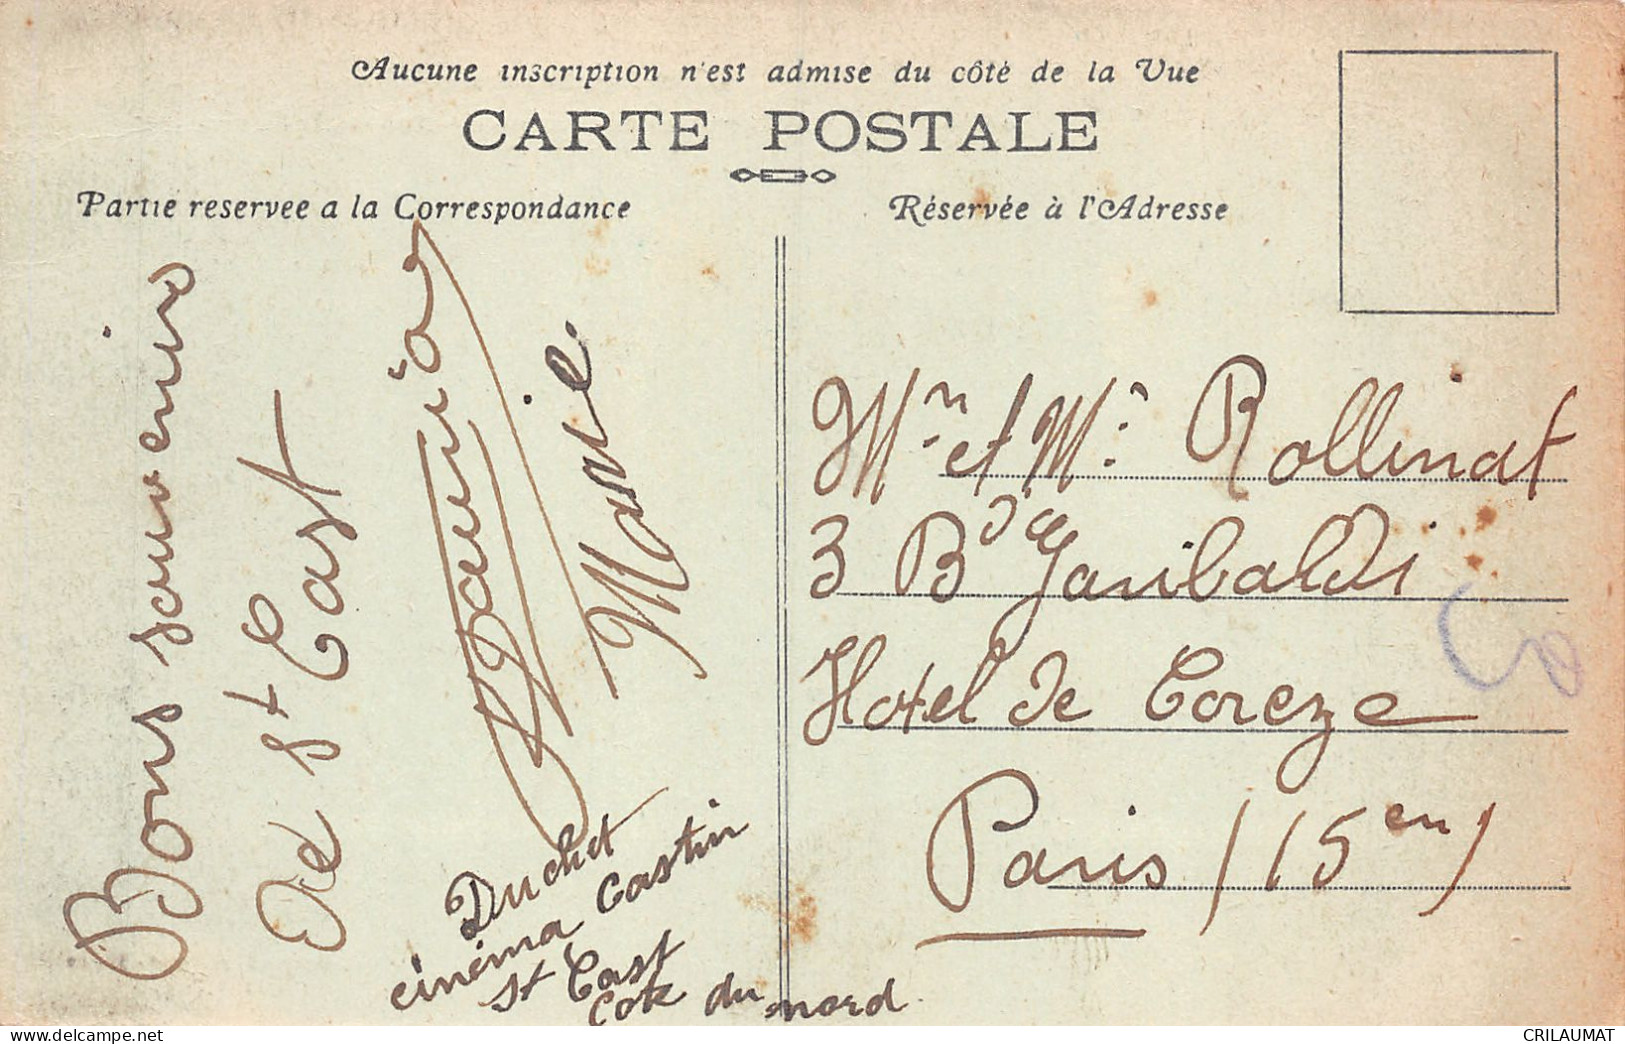 Aucune inscription n'est admise du côté de la Vue
CARTE POSTALE
Partie reservee a la Correspondance
Réservée à l'Adresse
Bons souvenirs
de St Cast
Marie
Duchet
cinéma Castin
St Cast
Cote du nord
Mr et Mr Rollinat
3 Bd Garibaldi
Hotel de Coreze
Paris (15em)
CRILAUMAT